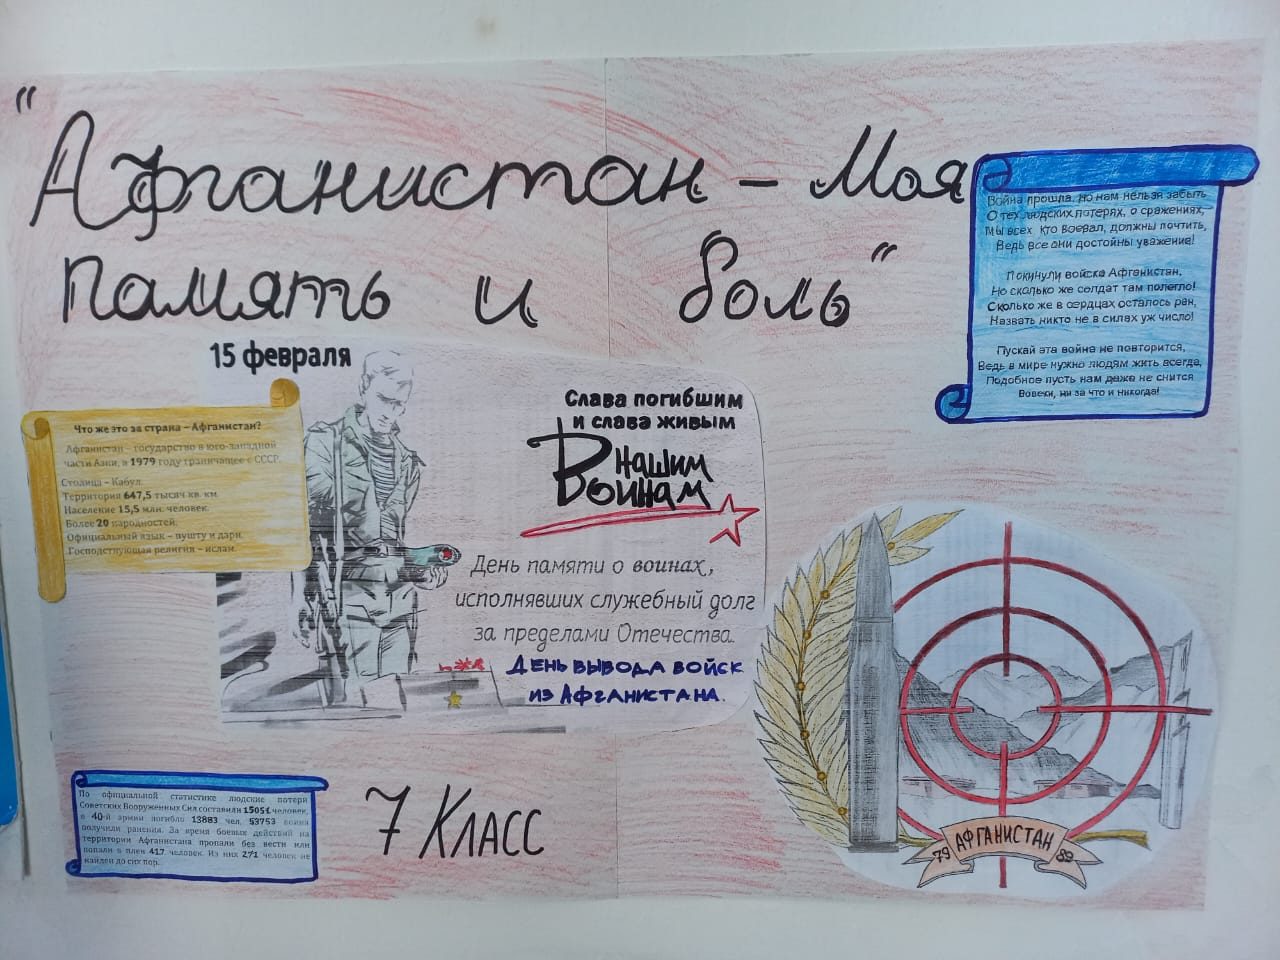 "Афганистан – Моя
память и боль"
Война прошла, но нам нельзя забыть
О тех людских потерях, о сражениях,
Мы всех кто воевал, должны почтить,
Ведь все они достойны уважение!
Покинули войска Афганистан,
Но сколько же солдат там полегло!
Сколько же в сердцах осталось ран,
Назвать никто не в силах уж число!
Пускай эта война не повторится,
Ведь в мире нужно людям жить всегда,
Подобное пусть нам даже не снится
Вовеки, ни за что и никогда!
15 февраля
Слава погибшим
и слава живым
нашим
Воинам
День памяти о воинах,
исполнявших служебный долг
за пределами Отечества.
День вывода войск
из Афганистана.
Что же это за страна – Афганистан?
Афганистан – государство в юго-западной
части Азии, в 1979 году граничащее с СССР.
Столица – Кабул.
Территория 647,5 тысяч кв. км.
Население 15,5 млн. человек.
Более 20 народностей.
Официальный язык – пушту и дари.
Господствующая религия – ислам.
По официальной статистике людские потери
Советских Вооруженных Сил составили 15051 человек,
в 40-й армии погибло 13883 чел. 53753 воина
получили ранения. За время боевых действий на
территории Афганистана пропали без вести или
попали в плен 417 человек. Из них 271 человек не
найден до сих пор.
7 Класс
79 Афганистан 89